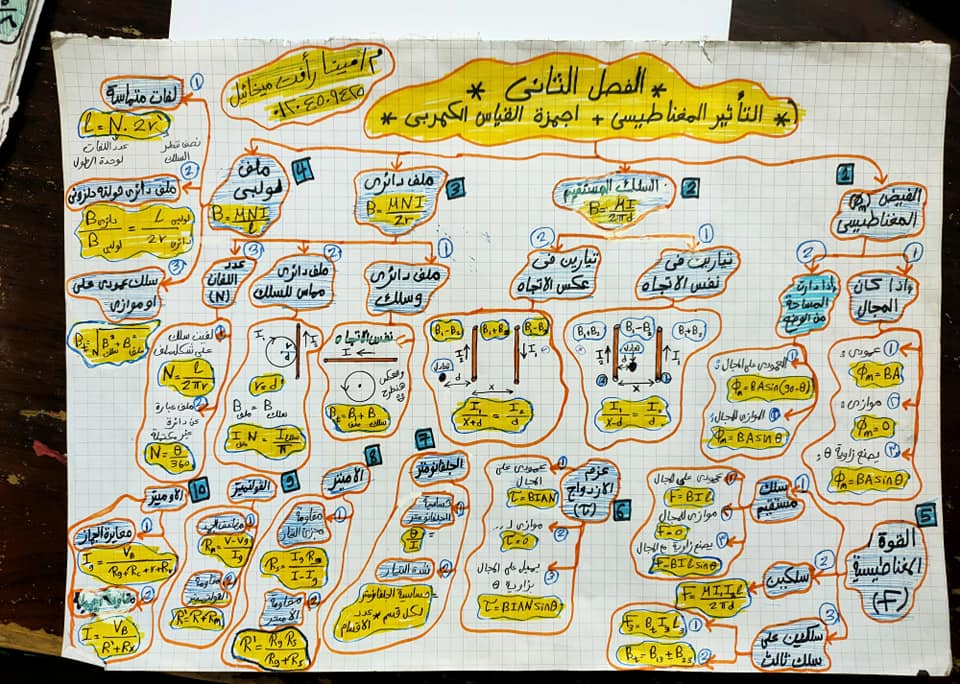 م/ مينا رأفت ميخائيل
٠١٢٠٤٥٠٩٤٢٥
* الفصل الثانى *
* التأثير المغناطيسى + اجهزة القياس الكهربى *
1
الفيض (φm)
المغناطيسى
1
إذا كان
المجال
1 عمودى:
φm = BA
2 موازى:
φm = 0
3 يصنع زاوية θ:
φm = BA sin θ
2
إذا دارت
المساحة
من الوضع
1 العمودى على المجال:
φm = BA sin(90-θ)
2 الموازى للمجال:
φm = BA sin θ
2
السلك المستقيم
B = MI / 2πd
1
تيارين فى
نفس الاتجاه
B1+B2
B1-B2
B1+B2
I2
I1
تعادل
d
x
I1 / x-d = I2 / d
2
تيارين فى
عكس الاتجاه
B1-B2
B1+B2
B1-B2
I2
I1
تعادل
d
x
I1 / x+d = I2 / d
3
ملف دائرى
B = MNI / 2r
1
ملف دائرى
وسلك
نفس الاتجاه
I
والعكس
هنطرح
Bt = B ملف + B سلك
2
ملف دائرى
مماس للسلك
I1
r
d
r = d
B ملف = B سلك
I ملف N = I سلك / π
3
عدد
اللفات
(N)
1 لفيت سلك
على شكل ملف
N = l / 2πr
2 ملف عبارة
عن دائرة
غير مكتملة
N = θ / 360
4
ملف
لولبى
B = MNI / l
1
لفات متماسة
l = N . 2r
نصف قطر
السلك
عدد اللفات
لوحدة الطول
2
ملف دائرى حولته حلزونى
B دائرى / B لولبى = l لولبى / 2r دائرة
3
سلك عمودى على
او موازى
Bt = √B² سلك + B² ملف
5
القوة
المغناطيسية
(F)
1
سلك
مستقيم
1 عمودى على المجال
F = BIL
2 موازى للمجال
F = 0
3 يصنع زاوية مع المجال
F = BIL sin θ
2
سلكين
F = MI1I2L / 2πd
3
سلكين على
سلك ثالث
1
F3 = Bt I3 L3
2
Bt = B13 ± B23
6
عزم
الازدواج
(τ)
1 عمودى على
المجال
τ = BIAN
2 موازى لـ..
τ = 0
3 يميل على المجال
بزاوية θ
τ = BIAN sin θ
7
الجلفانومتر
1
حساسية
الجلفانومتر
θ / I =
2
شدة التيار
= حساسية الجلفانومتر
لكل قسم * عدد
الاقسام
8
الأميتر
1
مقاومة
مجزئ التيار
Rs = Ig Rg / I-Ig
2
مقاومة
الأميتر
R' = Rg Rs / Rg+Rs
9
الفولتميتر
1
مضاعف الجهد
Rm = V-Vg / Ig
2
مقاومة
الفولتميتر
R' = R+Rm
10
الأوميتر
1
معايرة الجهاز
Ig = VB / Rg+Rc+r+Rv
2
I = VB / R'+Rx